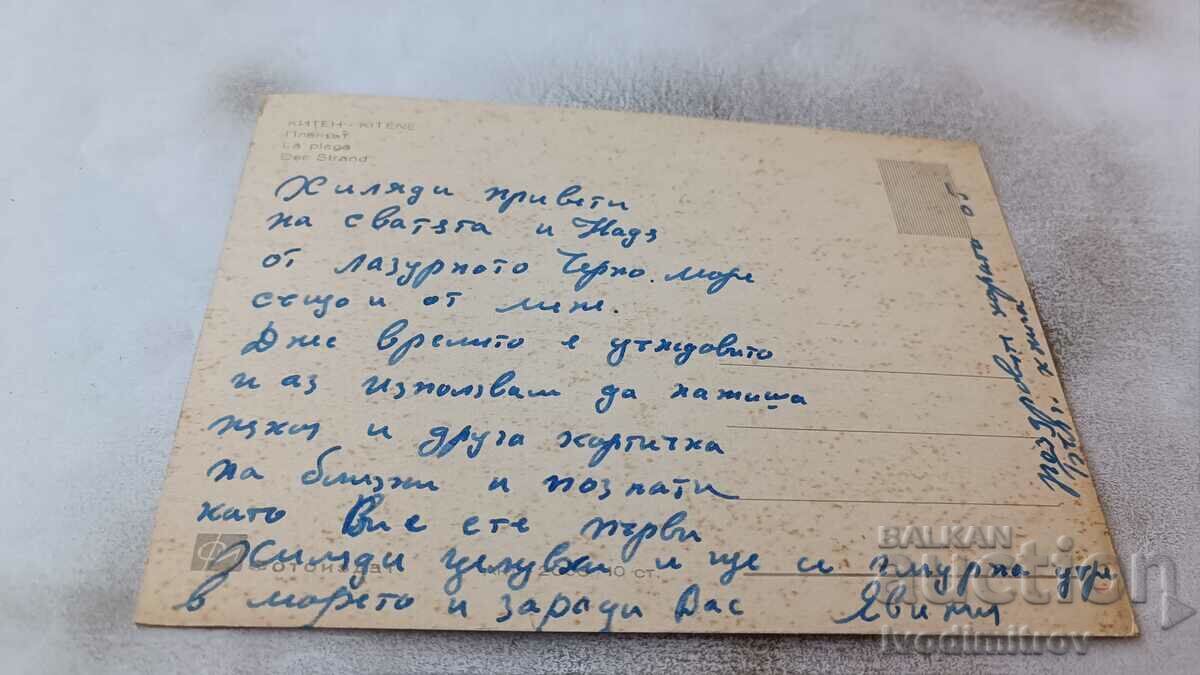 КИТЕН - KITENE
Плажът
La plage
Der Strand
Хиляди привети
на сватята и Надя
от лазурното Черно море
също и от мене.
Днес времето е дъждовито
и аз използвам да напиша
някоя и друга картичка
на близки и познати
като Вие сте първи
Хиляди целувки и ще се гмурна утре
в морето и заради Вас
поздрови от
ФОТОИЗДАТ
10 ст.
BALKAN
auction
ivodimitrov